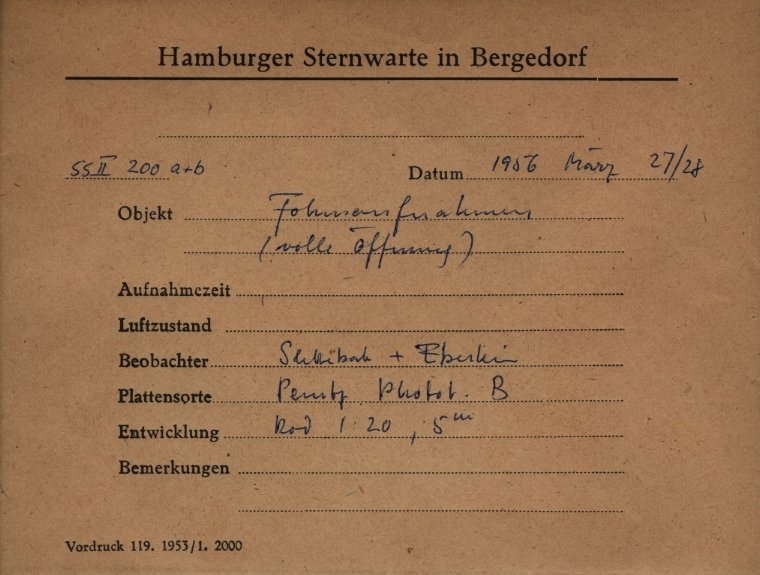 Hamburger Sternwarte in Bergedorf
SS II 200 a+b Datum 1956 März 27/28
Objekt
(volle Öffnung)
Aufnahmezeit
Luftzustand
Beobachter +
Plattensorte B
Entwicklung Rod 1:20, 5 m
Bemerkungen
Vordruck 119. 1953/1. 2000